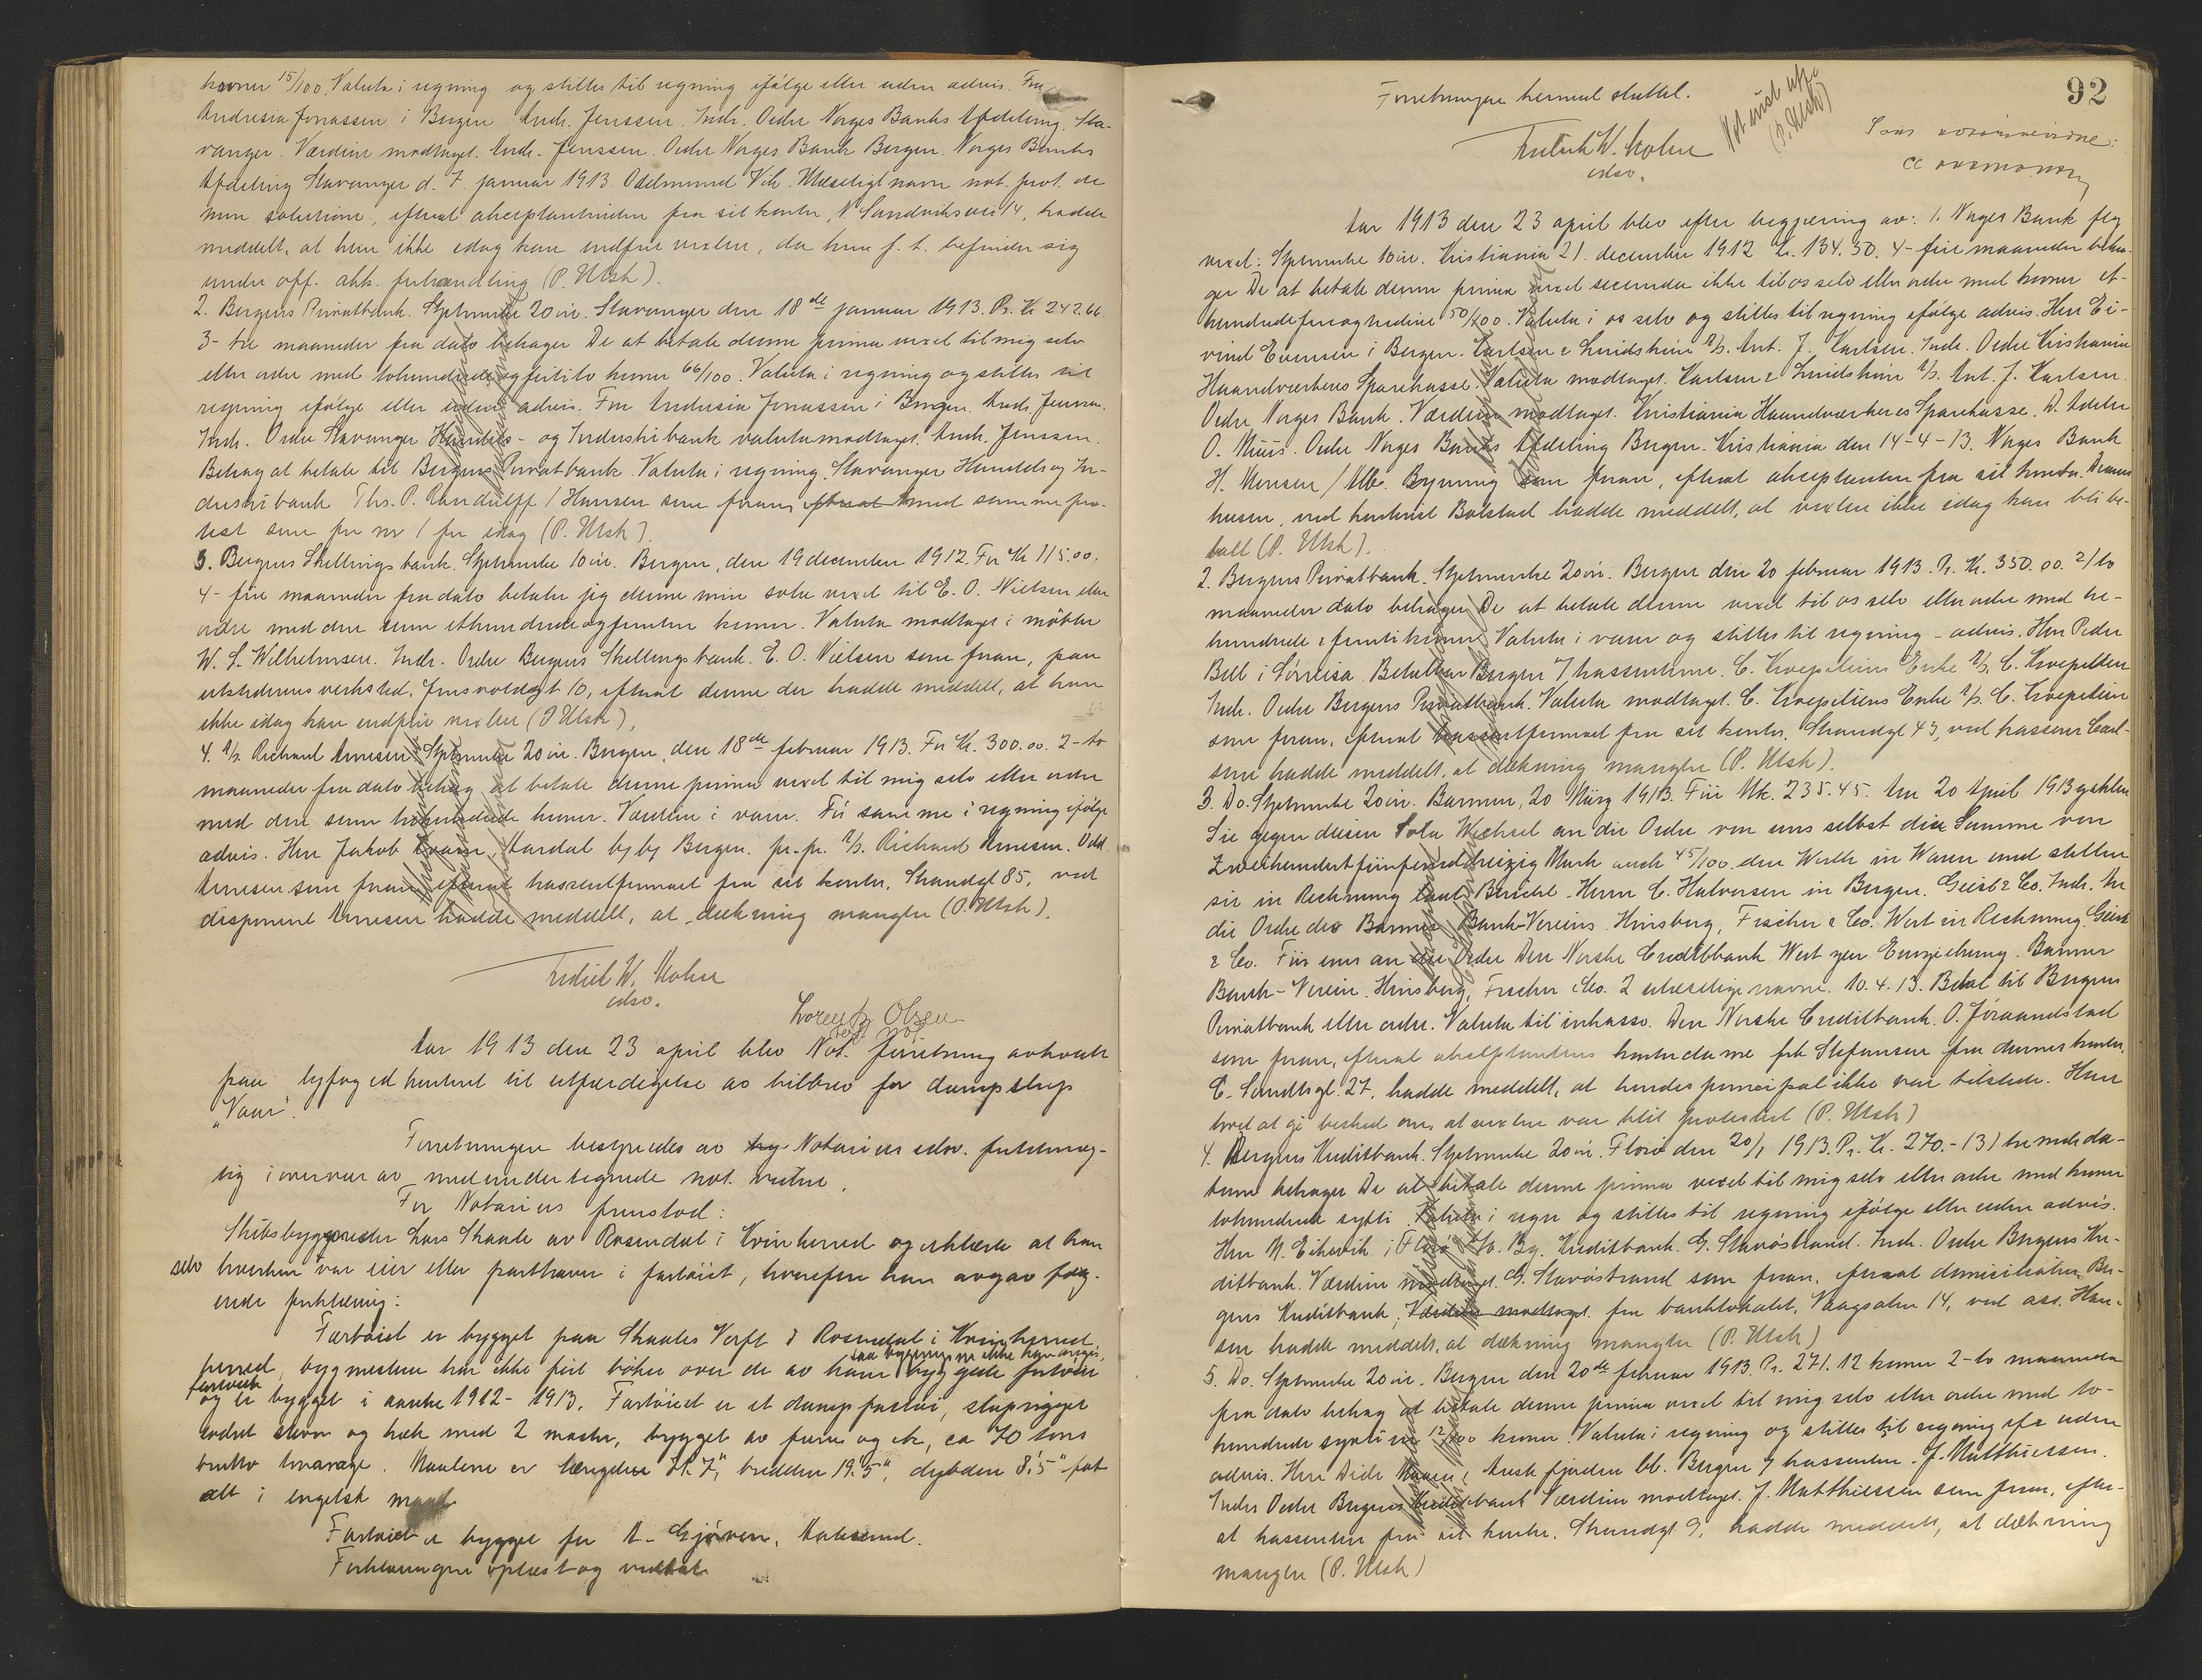 kroner 15/100. Valuta i regning og stilles til regning ifølge eller uden advis. Fru
Andresia Jonassen i Bergen Andr. Jenssen. Indr. Ordre Norges Banks Afdeling, Sta-
vanger. Værdien modtaget. Andr. Jenssen. Ordre Norges Bank Bergen. Norges Banks
Afdeling Stavanger d. 7. januar 1913. Ulæseligt navn not. prot. de
non solutione, efterat akceptantinden fra sit kontor, N. Sandviksvei 14, hadde
meddelt, at hun ikke idag kan indfrie vexlen, da hun f. t. befinder sig
under off. akk. forhandling (P. Utsk).
2. Bergens Privatbank. Stpltmerke 20 øre. Stavanger den 18de januar 1913. Pr. Kr 242.66.
3- tre maaneder fra dato behager De at betale denne prima vexel til mig selv
eller ordre med tohundrede og førtito kroner 66/100. Valuta i regning og stilles til
regning ifølge eller uden advis. Fru Andresia Jonassen i Bergen. Andr. Jenssen.
Indr. Ordre Stavanger Handels- og Industribank valuta modtaget. Andr. Jenssen.
Behag at betale til Bergens Privatbank. Valuta i regning. Stavanger Handels og In-
dustribank Ths. P. Randulff / Hansen som foran, efterat med samme pro-
test som for nr 1 for idag (P. Utsk).
3. Bergens Skillingsbank. Stpltmerke 10 øre. Bergen, den 19 december 1912. For Kr 115.00.
4- fire maaneder fra dato betaler jeg denne min sola vexel til E. O. Nielsen eller
ordre med den sum ethundrede og femten kroner. Valuta modtaget i møbler
W. L. Wilhelmsen. Indr. Ordre Bergens Skillingsbank. E. O. Nielsen som foran, paa
utstederens verksted, 10, efterat denne der hadde meddelt, at han
ikke idag kan indfrie vexlen (P Utsk).
4. A/s. Richard Arnesen. Stpltmerke 20 øre. Bergen, den 18de februar 1913. For Kr. 300.00. 2- to
maaneder fra dato behag at betale denne prima vexel til mig selv eller ordre
med den sum trehundrede kroner. Værdien i varer. Før samme i regning ifølge
advis. Herr Jakob, Aardal by by Bergen. pr. pr. A/s. Richard Arnesen.
Arnesen som foran, efterat hassentfirmaet fra sit kontor, Strandgt 85, ved
disponent Arnesen hadde meddelt, at dækning mangler (P. Utsk).
Fredrik W. Mohn
edsv.
Lorentz Olsen
Aar 1913 den 23 april blev Not. forretning avholdt
paa byfogedkontoret til utfærdigelse av bilbrev for dampskip
"Vaar".
Forretningen bestyredes av Notarius edsv. fuldmæg-
tig i overvær av medundertegnede not. vidne.
For Notarius fremstod:
Skibsbyggmester Lars Skaale av Rosendal i Kvinherred og erklærte at han
selv hverken var eier eller parthaver i fartøiet, hvorefter han avgav følg-
ende forklaring:
Fartøiet er bygget paa Skaales Verft i Rosendal i Kvinherred
herred, bygmesteren har ikke ført bøker over de av ham byggede fartøier
og er bygget i aarene 1912- 1913. Fartøiet er et dampfartøi, sluprigget
rodret stevn og hæk med 2 master, bygget av furu og ek, ca 70 tons
brutto drægt. Maalene er længden 71. 7", bredden 19.5", dybden 8.5" fot
alt i engelsk maal.
Fartøiet er bygget for A. Gjøren, Aalesund.
Forklaringen oplæst og vedtat.
92
Forretningen hermed sluttet.
Fredrik W. Mohn
edsv.
Not. utf.
(P. Utsk)
Aar 1913 den 23 april blev efter begjæring av: 1. Norges Bank flg
vexel: Stpltmerke 10 øre. Kristiania 21. december 1912 Kr. 134.50. 4- fire maaneder beha-
ger De at betale denne prima vexel secunda ikke til os selv eller ordre med kroner et-
hundrede fireogtredive 50/100. Valuta i os selv og stilles til regning ifølge advis. Herr Ei-
vind Evensen i Bergen. Karlsen & Lundstein A/s. Ant. J. Karlsen. Indr. Ordre Kristiania
Haandværkeres Sparekasse. Valuta modtaget. Karlsen & Lundstein A/s. Ant. J. Karlsen.
Ordre Norges Bank. Værdien modtaget. Kristiania Haandværkeres Sparekasse. D. Adeler
O. Muus. Ordre Norges Banks Afdeling Bergen. Kristiania den 14-4-13. Norges Bank
H. Monsen / Alb. Bynning som foran, efterat akceptanten fra sit kontor,
husen, ved kontorist Bolstad hadde meddelt, at vexlen ikke idag kan bli be-
talt (P. Utsk).
2. Bergens Privatbank. Stpltmerke 20 øre. Bergen den 20 februar 1913. Pr. Kr. 350.00. 2/to
maaneder dato behager De at betale denne vexel til os selv eller ordre med tre-
hundrede & femti kroner. Valuta i varer og stilles til regning - advis. Herr Peder
Bell i Sørreisa. Betalbar Bergen 7 hassenterne. C. Kroepeliens Enke A/s. C. Kroepelien
Indr. Ordre Bergens Privatbank. Valuta modtaget. C. Kroepeliens Enke A/s. C. Kroepelien
som foran, efterat hassentfirmaet fra sit kontor, Strandgt 43, ved kasserer Carl-
sen hadde meddelt, at dækning mangler (P. Utsk).
3. Do. Stpltmerke 20 øre. Barmen, 20 März 1913. Für Mk. 235.45. Am 20 April 1913 zahlen
Sie gegen diesen Sola Wechsel an die Ordre von uns selbst die Summe von
Zweihundertfünfunddreizig Mark auch 45/100 den Werth in Waren und stellen
sie in Rechnung laut Bericht. Herrn C. Halvorsen in Bergen. Geist & Co. Indr. An
die Ordre des Barmer Bank-Vereins Hinsberg, Fischer & Co. Wert in Rechnung. Geist
& Co. Für uns an die Ordre Den Norske Creditbank Wert zur Einziehung. Barmer
Bank-Verein. Hinsberg, Fischer & Co. 2 ulæselige navne. 10. 4. 13. Betal til Bergens
Privatbank eller ordre. Valuta til inkasso. Den Norske Creditbank. O. Joraandstad
som foran, efterat akseptantens kontordame frk Stefansen fra dennes kontor,
C. Sundtsgt. 27, hadde meddelt, at hendes principal ikke var tilstede. Hun
lovet at gi besked om, at vexlen var blit protestert (P. Utsk)
4. Bergens Kreditbank. Stpltmerke 20 øre. Florø den 20/1 1913. Pr. Kr. 270.- (3) tre mndr da-
tum behager De at betale denne prima vexel til mig selv eller ordre med kroner
tohundrede sytti. Valuta i regn og stilles til regning ifølge eller uden advis.
Herr M. Eikevik i Florø. Bg. Kreditbank. G. Stavøstrand. Indr. Ordre Bergens Kre-
ditbank. Værdien modtaget. G. Stavøstrand som foran, efterat domiciliaten, Ber-
gens Kreditbank, Værdien modtaget. fra banklokalet, Vaagsalm 14, ved ass. Han-
sen hadde meddelt, at dækning mangler (P. Utsk)
5. Do. Stpltmerke 20 øre. Bergen den 20de februar 1913. Pr. 271.12 kroner 2- to maaneder
fra dato behag at betale denne prima vexel til mig selv eller ordre med to-
hundrede sytti en 12/100 kroner. Valuta i regning og stilles til regning ifø uden
advis. Herr Didr, Austfjorden bl. Bergen 7 hassenten. J. Matthiessen.
Indr. Ordre Bergens Kreditbank Værdien modtaget. J. Matthiessen som foran, efter-
at hassenten fra sit kontor, Strandgt 9, hadde meddelt, at dækning
mangler (P. Utsk)